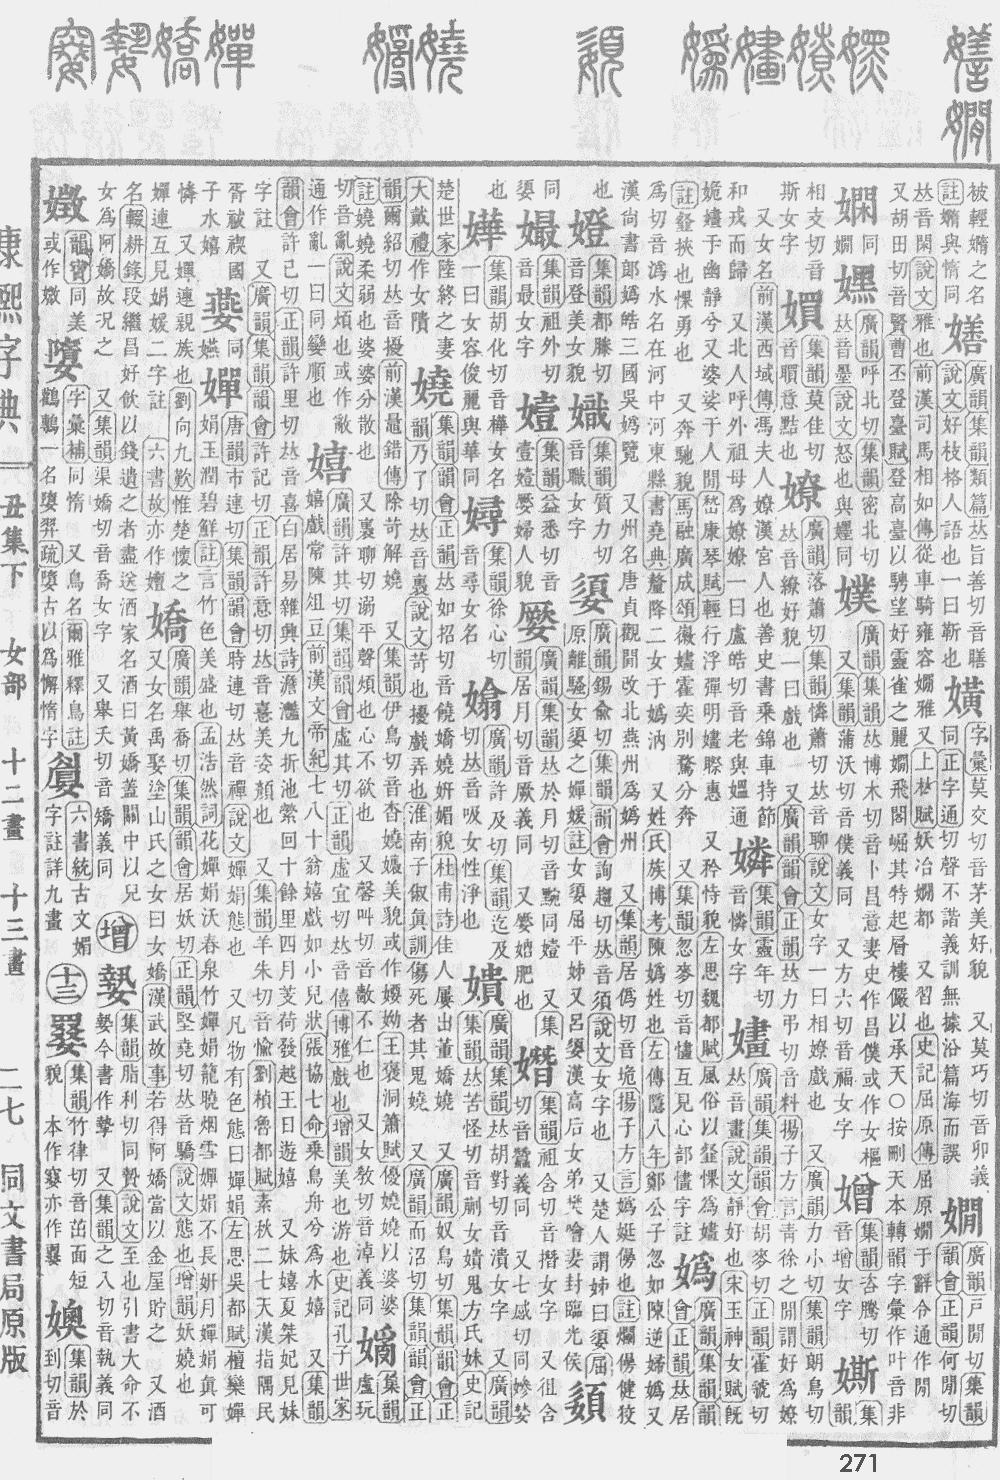 嫸嫺
嫼嫽嫿嬀
嬃
嬈嫡
嬋嬌嫯嫢
被輕媠之名
註媠與惰同
嫸廣韻集韻類篇𠀤旨善切音膳
說文好枝格人語也一曰靳也
字彙莫交切音茅美好貌 又莫巧切音卯義
同 正字通切聲不諧義訓無據沿篇海而誤
嫺廣韻戸閒切集韻
韻會正韻何閒切
𠀤音閑說文雅也前漢司馬相如傳從車騎雍容嫺雅 又上林賦妖冶嫺都 又習也史記屈原傳屈原嫺于辭令通作閒
又胡田切音賢曹丕登臺賦登高臺以騁望好靈雀之麗嫺飛閣崛其特起層樓儼以承天○按刪天本轉韻字彙作叶音非
嫻同
嫺
嫼廣韻呼北切集韻密北切
𠀤音墨說文怒也與嬺同
嬪
廣韻集韻𠀤博木切音卜昌意妻史作昌僕或作女樞
又集韻蒲沃切音僕義同 又方六切音福女字
嬒集韻咨騰切
音增女字
嘶集韻
相支切音
斯女字
集韻莫佳切
音𥈆意點也
嫽廣韻落蕭切集韻憐蕭切𠀤音聊說文女字一曰相嫽戲也 又廣韻力小切集韻朗鳥切
𠀤音繚好貌一曰戲也 又廣韻韻會正韻𠀤力弔切音料揚子方言靑徐之閒謂好爲嫽
又女名前漢西域傳馮夫人嫽漢宮人也善史書乘錦車持節
和戎而歸 又北人呼外祖母爲嫽嫽一曰盧皓切音老與媼通
集韻靈年切
音憐女字
嫿廣韻集韻韻會胡麥切正韻霍虢切
𠀤音畫說文靜好也宋玉神女賦旣
姽嫿于幽靜兮又婆娑于人閒嵆康琴賦輕行浮彈明嫿瞭惠 又矜恃貌左思魏都賦風俗以韰惈爲嫿
註韰挾也惈勇也 又奔馳貌馬融廣成頌徽嫿霍奕別騖分奔 又集韻忽麥切音㦎互見心部㦎字註
嬀廣韻集韻韻
會正韻𠀤居
爲切音潙水名在河中河東縣書堯典釐降二女于嬀汭 又姓氏族博考陳嬀姓也左傳隱八年鄭公子忽如陳逆婦嬀又
漢尚書郎嬀皓三國吳嬀覽 又州名唐貞觀開改北燕州爲嬀州 又集韻居僞切音垝揚子方言嬀娗僈也註爛僈健狡
也
嬁集韻都縢切
音登美女貌
集韻質力切
音職女字
嬃廣韻錫兪切集韻韻會詢趨切𠀤音須說文女字也 又楚人謂姊曰嬃屈
原離騷女嬃之嬋媛註女嬃屈平姊又呂嬃漢高后女弟樊噲妻封臨光侯
同
嬃
集韻祖外切
音最女字
嬄集韻益悉切音
壹嬄嬮婦人貌
廣韻集韻𠀤於月切音黦同嬄
韻居月切音厥義同 又嬮嬄肥也
集韻祖含切音撍女字 又徂含
切音蠶義同 又七感切同嬠婪
也
嬅集韻胡化切音樺女名
一曰女容俊麗與華同
集韻徐心切
音尋女名
廣韻許及切集韻迄及
切𠀤音吸女性淨也
嬇廣韻𠀤胡對切音潰女字 又廣韻
集韻𠀤苦怪切音蒯女嬇鬼方氏妹史記
楚世家陸終之妻
大戴禮作女隤
嬈集韻韻會正韻𠀤如招切音饒嬌嬈姸媚貌杜甫詩佳人屢出董嬌嬈 又廣韻奴鳥切集韻韻會正
韻乃了切𠀤音裊說文苛也擾戲弄也淮南子俶眞訓傷死者其鬼嬈 又廣韻而沼切集韻韻會正
韻爾紹切𠀤音擾前漢鼂錯傳除苛解嬈 又集韻伊鳥切音杳嬈嬝美貌或作㜵㚼王褒洞簫賦優嬈嬈以婆娑
註嬈嬈柔弱也婆娑分散也 又裊聊切溺平聲煩也心不欲也 又馨叫切音歊不仁也 又女敎切音淖義同
集韻
盧玩
切音亂說文煩也或作敵
通作亂一曰同孌順也
嬉廣韻許其切集韻韻會虛其切正韻虛宜切𠀤音僖博雅戲也增韻美也游也史記孔子世家
嬉戲常陳俎豆前漢文帝紀七八十翁嬉戲如小兒狀張協七命乗鳥舟兮爲水嬉 又集韻
韻會許己切正韻許里切𠀤音喜白居易雜興詩澹灩九折池縈回十餘里四月芰荷發越王日遊嬉 又妹嬉夏桀妃見妹
字註 又廣韻集韻韻會許記切正韻許意切𠀤音憙美姿顏也 又集韻羊朱切音愉劉楨魯都賦素秋二七天漢指隅民
胥祓禊國
子水嬉
同
嬿
嬋唐韻市連切集韻韻會時連切𠀤音禪說文嬋娟態也 又凡物有色態曰嬋娟左思吳都賦檀欒嬋
娟玉潤碧鮮註言竹色美盛也孟浩然詞花嬋娟沃春泉竹嬋娟籠曉烟雪嬋娟不長姸月嬋娟眞可
憐 又嬋連親族也劉向九歎惟楚懷之
嬋連互見娟媛二字註 六書故亦作嬗
嬌廣韻舉喬切集韻韻會居妖切正韻堅堯切𠀤音驕說文態也增韻妖嬈也
又女名禹娶塗山氏之女曰女嬌漢武故事若得阿嬌當以金屋貯之 又酒
名輟耕錄段繼昌好飮以錢遺之者盡送酒家名酒曰黃嬌蓋關中以兒
女爲阿嬌故况之 又集韻渠嬌切音喬女字 又舉夭切音矯義同
增
嫯集韻脂利切同贄說文至也引書大命不
嫯今書作摯 又集韻之入切音執義同
嬍韻會同美
或作媺
嫷字彙補同惰 又鳥名爾雅釋鳥註
鸛鷒一名墮羿疏墮古以爲懈惰字
六書統古文媚
字註詳九畫
十三
嫢集韻竹律切音茁面短
貌 本作窡亦作嬽
嬩集韻於
到切音
康熙字典 丑集下 女部 十二畫 十三畫 二七 同文書局原版
271